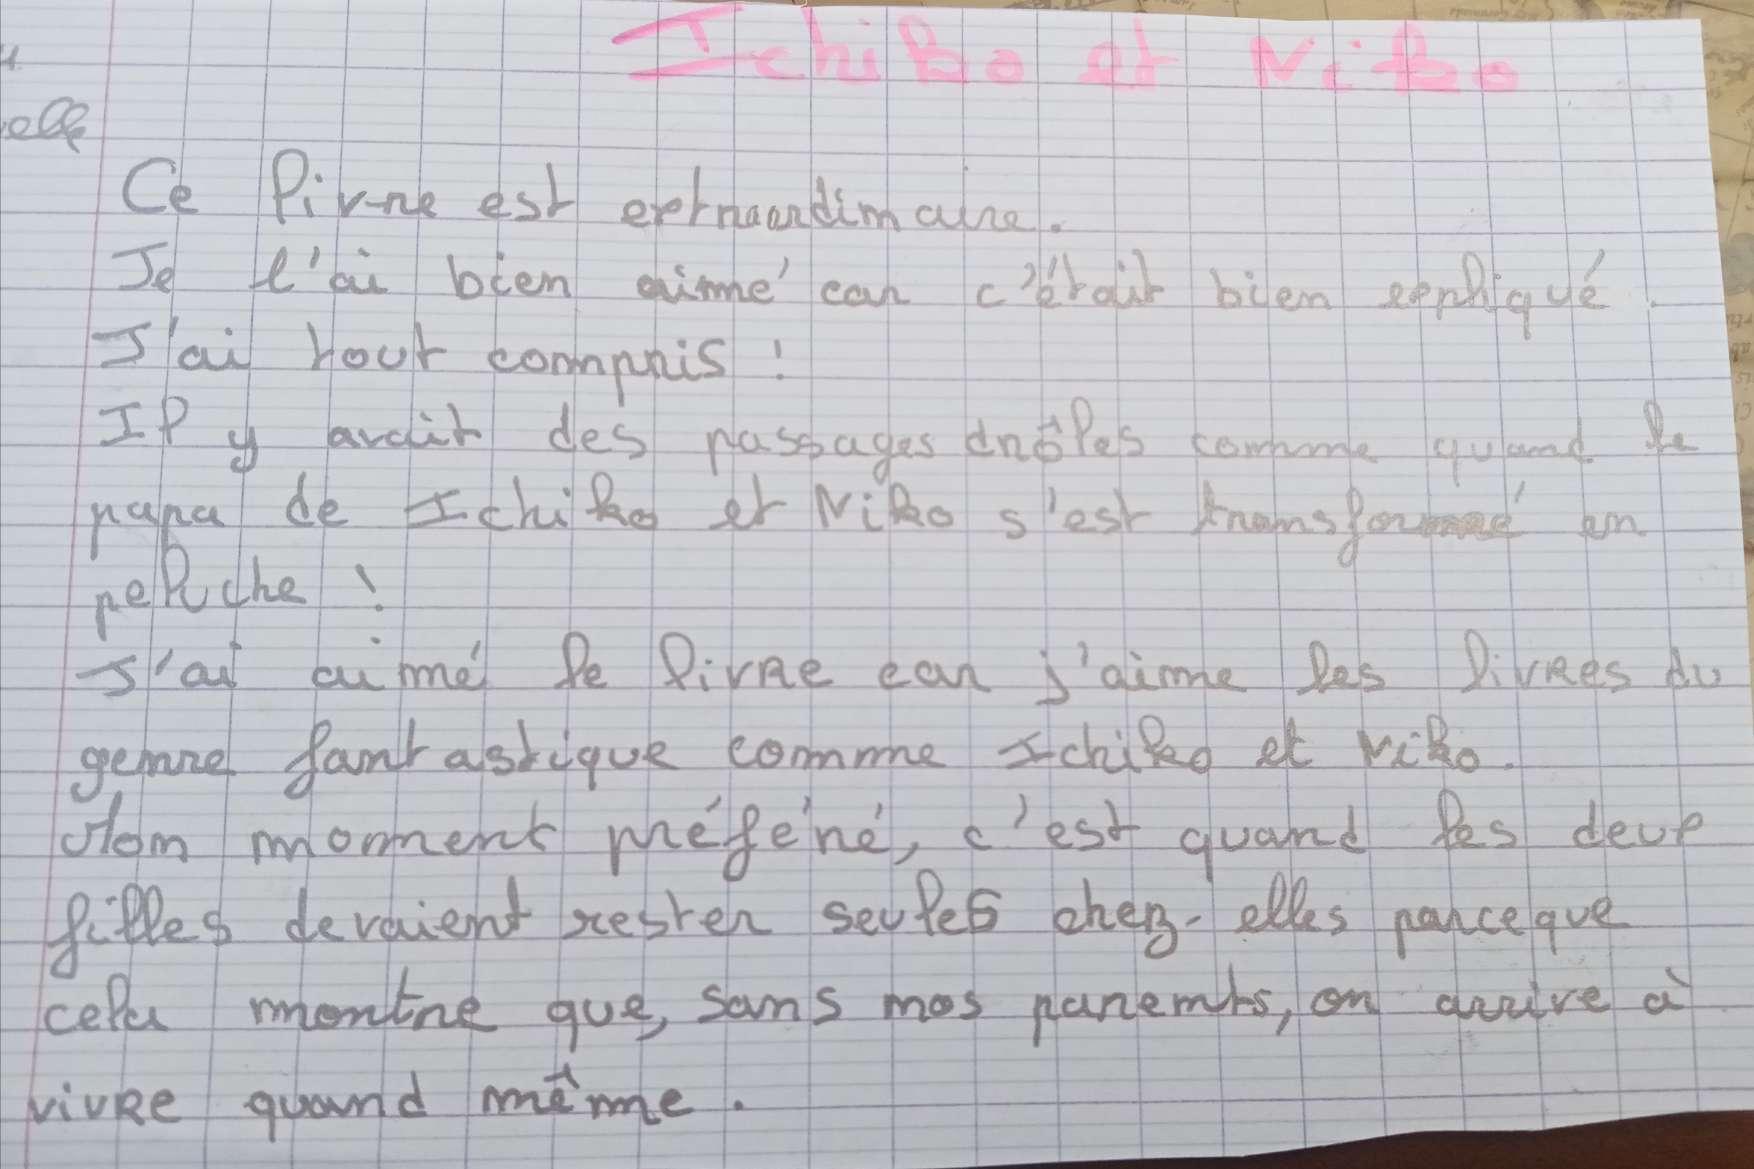 Ichiko et Niko
elle
Ce livre est extraordinaire.
Je l'ai bien aimé car c'était bien expliqué.
J'ai tout compris !
Il y avait des passages drôles comme quand le
papa de Ichiko et Niko s'est transformé en
peluche !
J'ai aimé le livre car j'aime les livres du
genre fantastique comme Ichiko et Niko.
Mon moment préféré, c'est quand les deux
filles devaient rester seules chez-elles parceque
cela montre que, sans nos parents, on arrive à
vivre quand même.